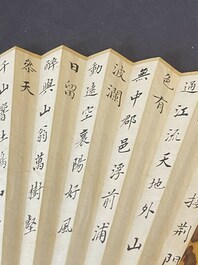 接荊門
通江流天地外山
色有
無中郡邑浮前浦
波瀾
動遠空襄陽好風
日留
醉與山翁萬樹壑
參天
千山響杜鵑